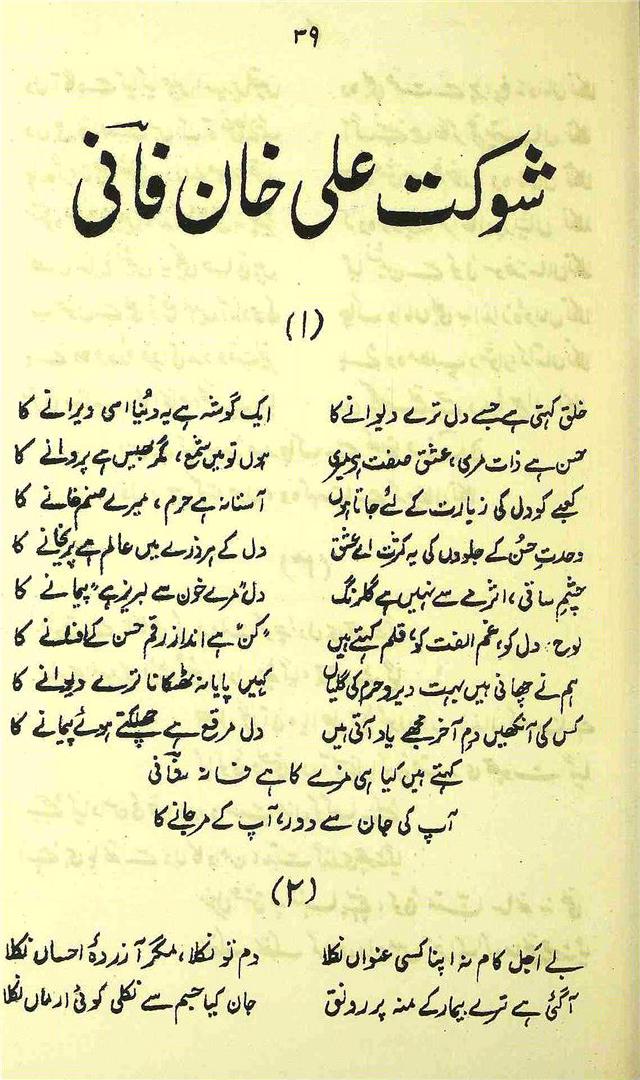 ۳۹
شوکت علی خان فانی
(۱)
خلق کہتی ہے جسے دل ترے دیوانے کا ایک گوشہ ہے یہ دُنیا اسی ویرانے کا
حسن ہے ذات مری، عشق صفت ہے میری ہوں تو میں شمع، مگر بھیس ہے پروانے کا
کعبے کو دل کی زیارت کے لئے جاتا ہوں آستانہ ہے حرم، میرے صنم خانے کا
وحدتِ حُسن کے جلووں کی یہ کثرت اے عشق دل کے ہر ذرے میں عالم ہے پریخانے کا
چشمِ ساقی، اثرِ مے سے نہیں ہے گلرنگ دل مرے خون سے لبریز ہے پیمانے کا
لوح دل کو، غمِ الفت کو، قلم کہتے ہیں "کُن" ہے اندازِ رقم حسن کے افسانے کا
ہم نے چھانی ہیں بہت دیر و حرم کی گلیاں کہیں پایا نہ ٹھکانا ترے دیوانے کا
کس کی آنکھیں دمِ آخر مجھے یاد آتی ہیں دل مرقع ہے چھلکتے ہوئے پیمانے کا
کہتے ہیں کیا ہی مزے کا ہے فسانہ فانی
آپ کی جان سے دور، آپ کے مر جانے کا
(۲)
بے اَجل کام نہ اپنا کسی عنواں نکلا دم تو نکلا، مگر آزردۂ احساں نکلا
آگئی ہے ترے بیمار کے منہ پر رونق جان کیا جسم سے نکلی کوئی ارماں نکلا